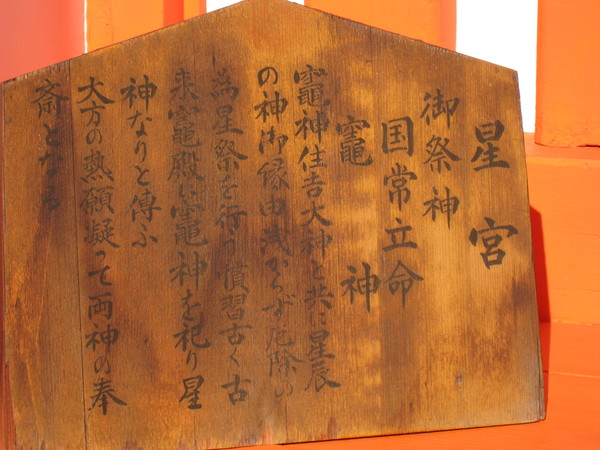 星宮
御祭神
国常立命
竈神
竈神住吉大神と共に星辰
の神御縁由浅からず厄除の
為星祭を行う慣習古く古
来竈殿に竈神を祀り星
神なりと傳ふ
大方の熱願凝つて両神の奉
斎となる